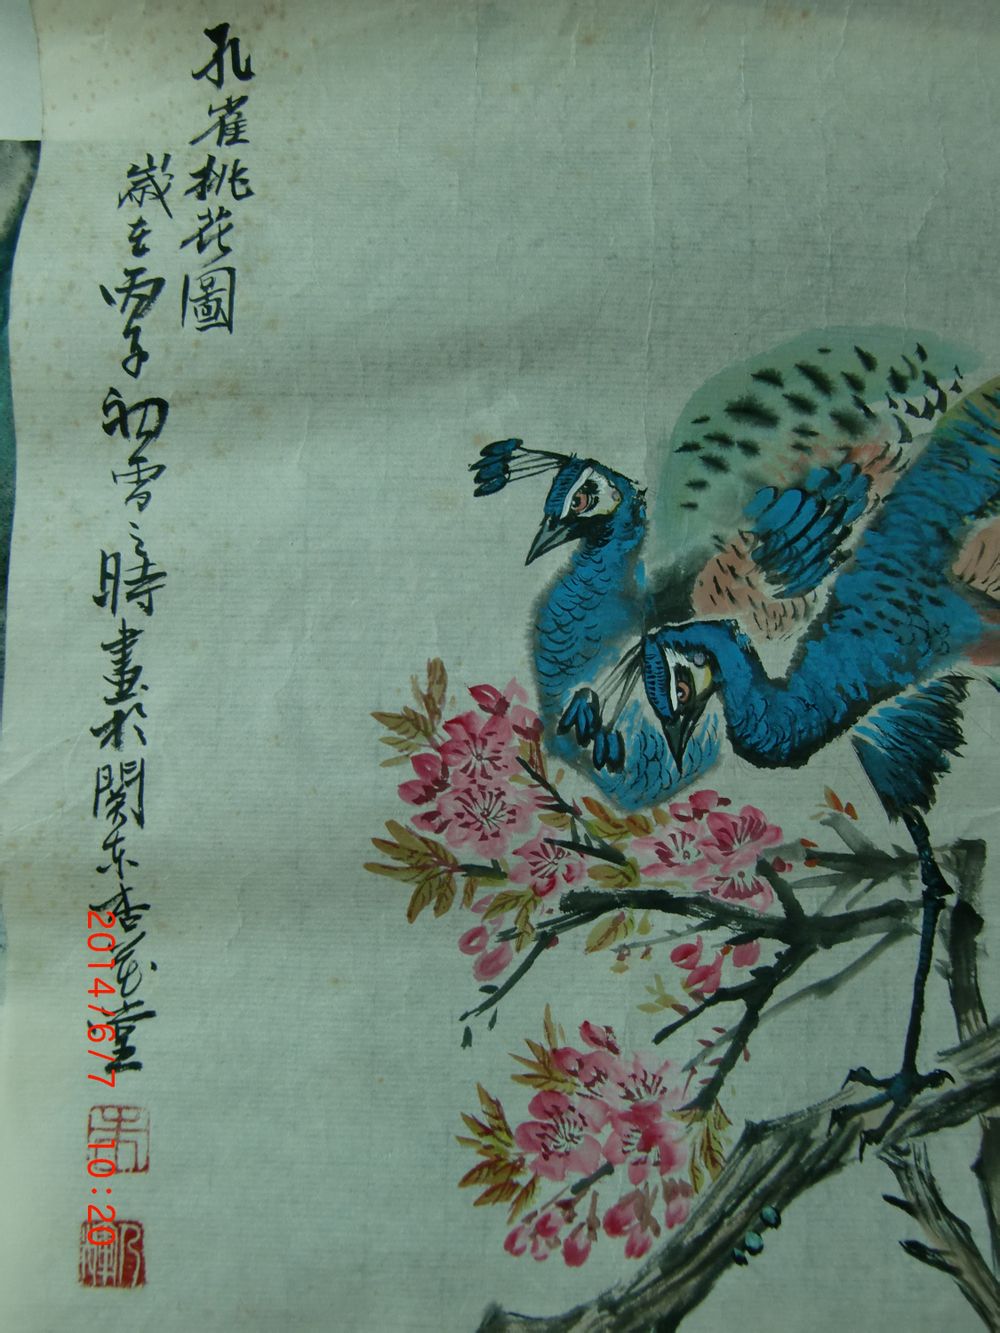 孔雀桃花圖
歲在丙子初雪時畫於関东杏花堂
2014/6/7 10:20